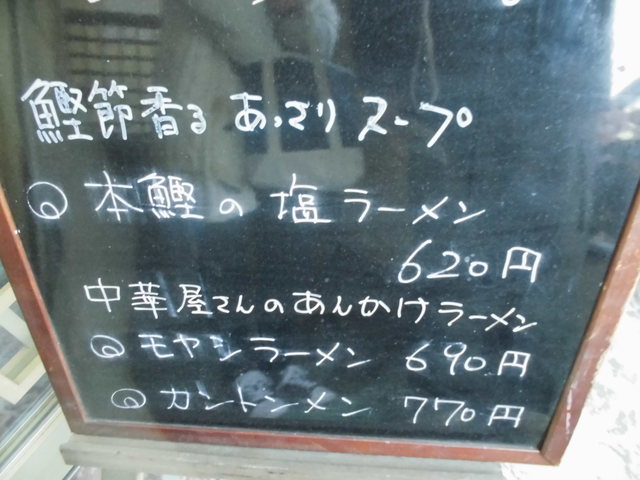 鰹節香る あっさりスープ
◎ 本鰹の塩ラーメン
620円
中華屋さんのあんかけラーメン
◎ モヤシラーメン 690円
◎ カントンメン 770円